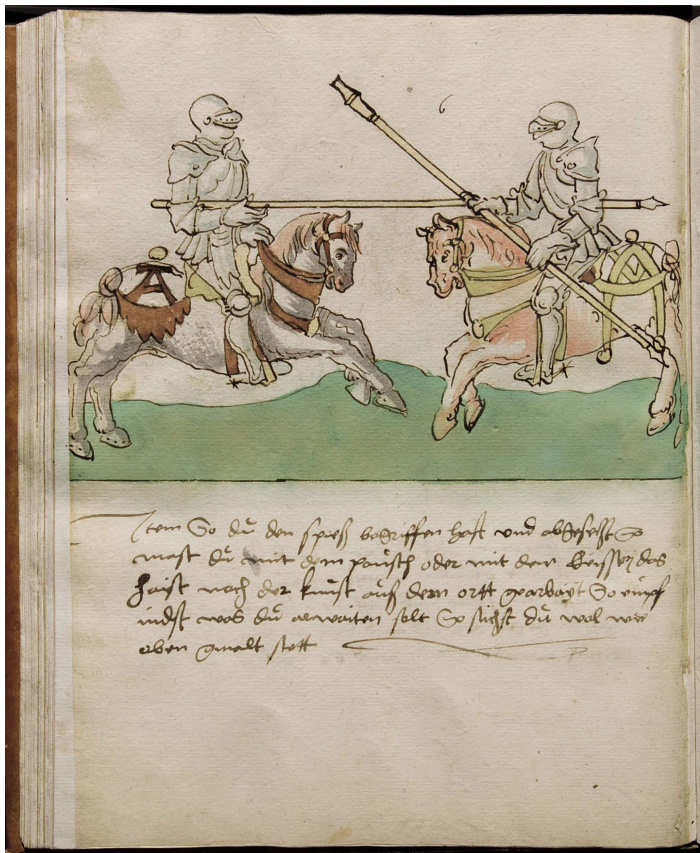 Item So dü den spieß begriffen hast und abgesetzt So
mast dü mit dem paüsch oder mit der
haist nach der künst aüß dem ortt gearbayt So empf
indst was dü arwaiten solt So stichst dü wol wie
oben gmalt stett